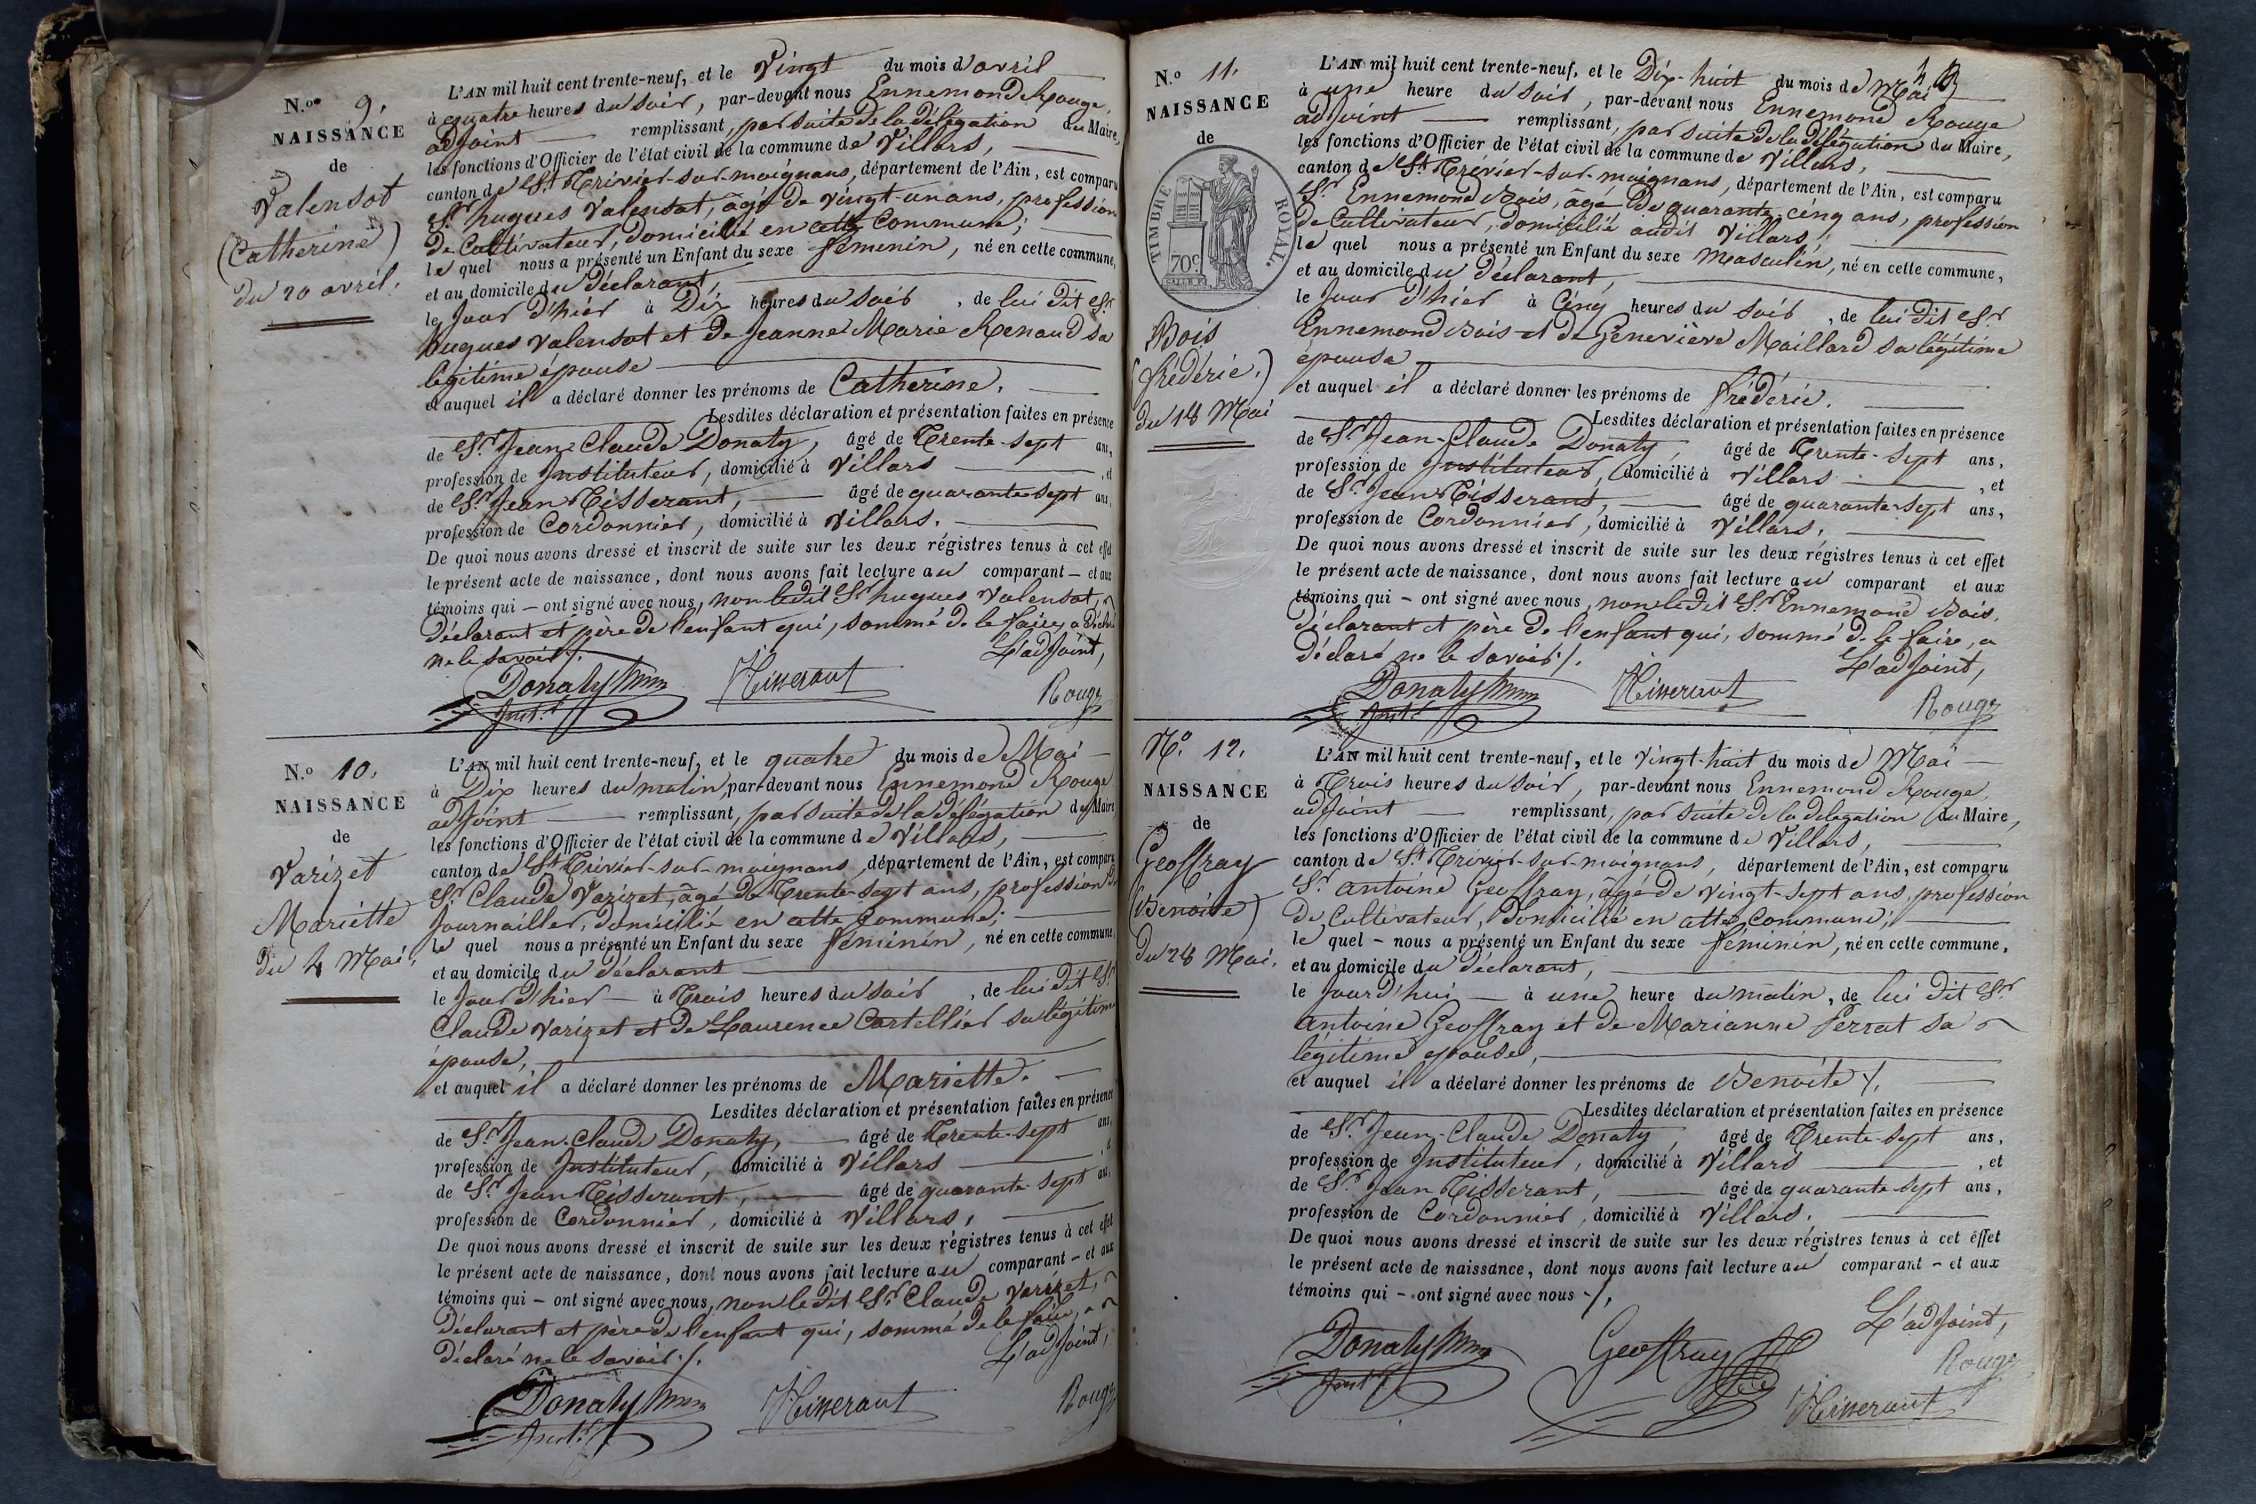 N.o 9.
NAISSANCE
de
Valensot
(Catherine)
du 20 avril.
L'AN mil huit cent trente-neuf, et le Vingt du mois d'avril
à quatre heures du Soir, par-devant nous Ennemond Rouge,
adjoint remplissant, par suite de la délégation du Maire,
les fonctions d'Officier de l'état civil de la commune de Villars,
canton de St Trivier-sur-moignans, département de l'Ain, est comparu
Sr. hugues Valensot, âgé de vingt-un ans, profession
de Cultivateur, domicilié en cette Commune;
le quel nous a présenté un Enfant du sexe féminin, né en cette commune,
et au domicile du Déclarant,
le Jour d'hier à Dix heures du Soir, de lui dit Sr.
hugues Valensot et de Jeanne Marie Renaud sa
légitime épouse
et auquel il a déclaré donner les prénoms de Catherine.
Lesdites déclaration et présentation faites en présence
de Sr. Jean-Claude Donaty, âgé de Trente-sept ans,
profession de Instituteur, domicilié à Villars, et
de Sr. Jean Tisserant, âgé de quarante-sept ans,
profession de Cordonnier, domicilié à Villars.
De quoi nous avons dressé et inscrit de suite sur les deux régistres tenus à cet effet
le présent acte de naissance, dont nous avons fait lecture au comparant – et aux
témoins qui – ont signé avec nous, non ledit Sr hugues Valensot,
Déclarant et père de l'enfant qui, sommé de le faire, a Déclaré
ne le savoir /.
L'adjoint,
Donaty
Inst.r
Tisserant
Rouge
N.o 10.
NAISSANCE
de
Varizet
Mariette
du 4 Mai.
L'AN mil huit cent trente-neuf, et le quatre du mois de Mai –
à Dix heures du matin, par-devant nous Ennemond Rouge
adjoint remplissant, par suite de la délégation du Maire
les fonctions d'Officier de l'état civil de la commune de Villars,
canton de St Trivier-sur-moignans, département de l'Ain, est comparu
Sr. Claude Varizet, âgé de Trente-sept ans, profession de
Journailler, domicilié en cette Commune;
le quel nous a présenté un Enfant du sexe féminin, né en cette commune,
et au domicile du déclarant
le Jour d'hier – à Trois heures du soir, de lui dit Sr
Claude Varizet et de Laurence Cartellier sa légitime
épouse,
et auquel il a déclaré donner les prénoms de Mariette.
Lesdites déclaration et présentation faites en présence
de Sr. Jean-Claude Donaty, âgé de Trente-sept ans,
profession de Instituteur, domicilié à Villars, et
de Sr. Jean Tisserant, âgé de quarante-sept ans,
profession de Cordonnier, domicilié à Villars,
De quoi nous avons dressé et inscrit de suite sur les deux régistres tenus à cet effet
le présent acte de naissance, dont nous avons fait lecture au comparant – et aux
témoins qui – ont signé avec nous, non ledit Sr. Claude Varizet,
Déclarant et père de l'enfant qui, sommé de le faire, a
déclaré ne le savoir /.
L'adjoint,
Donaty
Inst.r
Tisserant
Rouge
N.o 11.
NAISSANCE
de
TIMBRE ROYAL.
70c
Bois
(frédéric.)
du 18 Mai
L'AN mil huit cent trente-neuf, et le Dix-huit du mois de Mai
à une heure du soir, par-devant nous Ennemond Rouge
adjoint remplissant, par suite de la délégation du Maire,
les fonctions d'Officier de l'état civil de la commune de Villars,
canton de St Trivier-sur-moignans, département de l'Ain, est comparu
Sr. Ennemond Bois, âgé de quarante-cinq ans, profession
de Cultivateur, domicilié audit Villars;
le quel nous a présenté un Enfant du sexe Masculin, né en cette commune,
et au domicile du Déclarant,
le Jour d'hier à Cinq heures du soir, de lui dit Sr
Ennemond Bois et de Geneviève Maillard sa légitime
épouse
et auquel il a déclaré donner les prénoms de frédéric.
Lesdites déclaration et présentation faites en présence
de Sr Jean-Claude Donaty, âgé de Trente-sept ans,
profession de Instituteur, domicilié à Villars, et
de Sr. Jean Tisserant, âgé de quarante-sept ans,
profession de Cordonnier, domicilié à Villars.
De quoi nous avons dressé et inscrit de suite sur les deux régistres tenus à cet effet
le présent acte de naissance, dont nous avons fait lecture au comparant et aux
témoins qui – ont signé avec nous, non ledit Sr Ennemond Bois,
Déclarant et père de l'enfant qui, sommé de le faire, a
déclaré ne le savoir /.
L'adjoint,
Donaty
Inst.r
Tisserant
Rouge
N.o 12.
NAISSANCE
de
Geoffray
(Benoite)
du 28 Mai.
L'AN mil huit cent trente-neuf, et le vingt-huit du mois de Mai –
à Trois heures du Soir, par-devant nous Ennemond Rouge
adjoint remplissant, par suite de la délégation du Maire,
les fonctions d'Officier de l'état civil de la commune de Villars,
canton de St Trivier-sur-moignans, département de l'Ain, est comparu
Sr. antoine Geoffray, âgé de vingt-sept ans, profession
de Cultivateur, Domicilié en cette Commune,
le quel – nous a présenté un Enfant du sexe féminin, né en cette commune,
et au domicile du déclarant,
le Jourd'hui – à une heure du matin, de lui dit Sr
antoine Geoffray et de Marianne Perrat sa
légitime épouse,
et auquel il a déclaré donner les prénoms de Benoite /.
Lesdites déclaration et présentation faites en présence
de Sr. Jean-Claude Donaty, âgé de Trente-sept ans,
profession de Instituteur, domicilié à Villars, et
de Sr. Jean Tisserant, âgé de quarante-sept ans,
profession de Cordonnier, domicilié à Villars.
De quoi nous avons dressé et inscrit de suite sur les deux régistres tenus à cet effet
le présent acte de naissance, dont nous avons fait lecture au comparant – et aux
témoins qui – ont signé avec nous /.
L'adjoint,
Donaty
Inst.r
Geoffray
Rouge
Tisserant